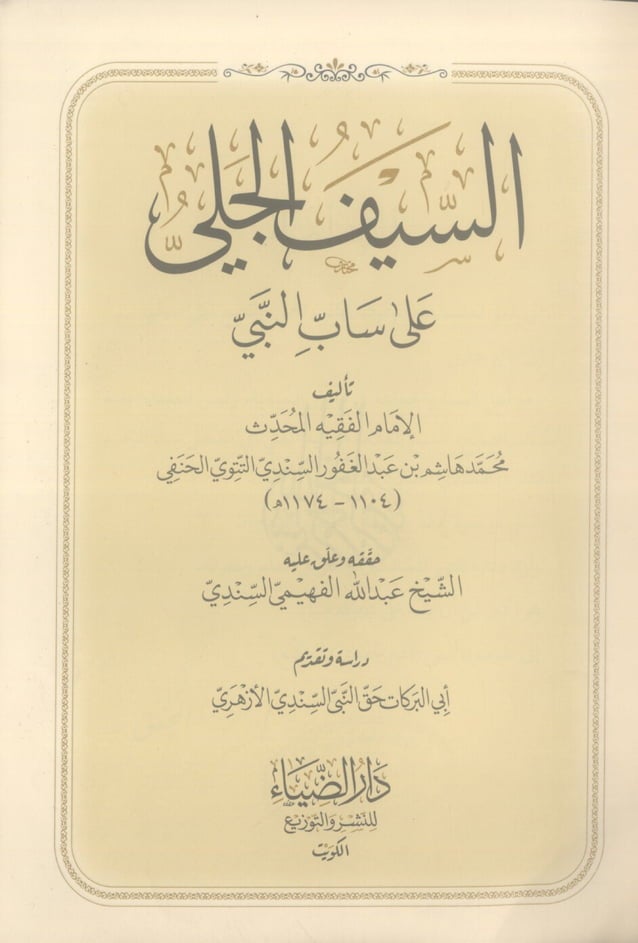 السَّيْفُ الجَلِيُّ
عَلَى سَابِّ النَّبَيِّ
تأليف
الإمَام الفَقِيْه المُحَدِّث
مُحَمَّد هَاشِم بْن عَبْد الغَفُور السِّنْدِيّ التَّتوِيّ الحَنَفِي
(١١٠٤ - ١١٧٤ه)
حقَّقه وعلَّق عليه
الشَّيْخ عَبْدالله الفهيْمِيّ السِّنْدِيّ
دراسة وتقديم
أبي البَركات حَقّ النَّبِيّ السِّنْدِيّ الأَزهَرِيّ
دَارُ الضِّيَاءِ
لِلنَشْرِ وَالتَوزِيْع
الكوَيْت